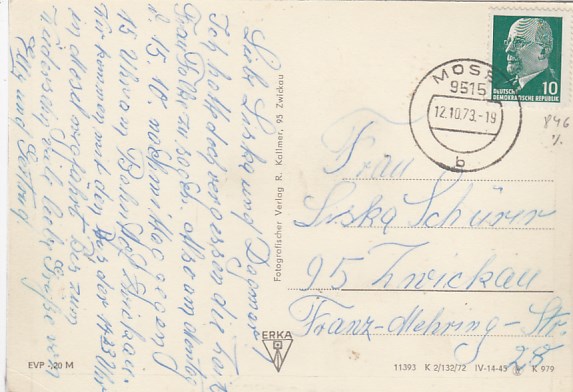 Liebe Liska und Dagmar!
Ich hatte doch vergessen die
Frau zu sagen. Also am Montag
d. 15.10. nachmittag gegen
15 Uhr am Bahnhof Zwickau.
Wir kommen mit den Bus der 14.23 Uhr
in Mosel
Bis zum
Wiedersehen viele liebe Grüße von
und
Fotografischer Verlag R. Kallmer, 95 Zwickau
ERKA
EVP -,20 M
MOSEL
9515
12.10.73.-19
b
DEUTSCHE
DEMOKRATISCHE REPUBLIK
10
Frau
Liska Schürer
95 Zwickau
Franz-Mehring-Str.
28
11393 K 2/132/72 IV-14-45 K 979